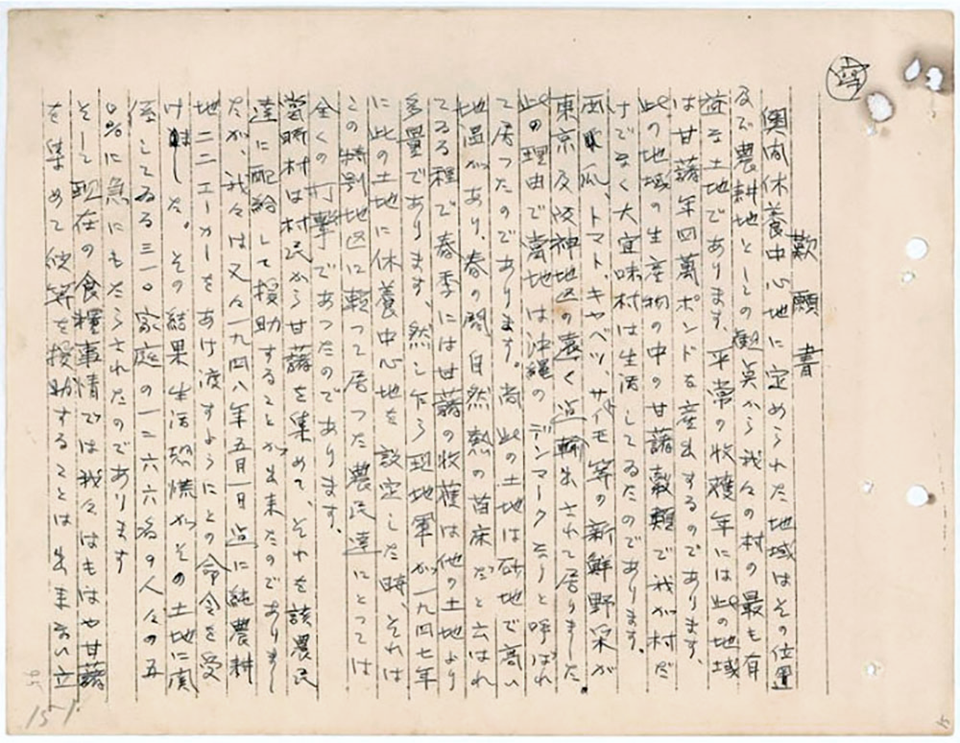 歎願書
奥間休養中心地に定めらた地域はその位置
及び農耕地としての観点から我々の村の最も有
益な土地であります。平常の收穫年には此の地域
は甘藷年四萬ポンドを産出するのであります。
此の地域の生産物の中の甘藷穀類で我が村だ
けでなく大宜味村は生活してゐたのであります。
西瓜、トマト、キャベツ、サイモ等の新鮮野采が
東京及阪神地区の遠く迠輸出されて居りました
此の理由で當地は沖縄のデンマークなりと呼ばれ
て居つたのであります。尚此の土地は砂地で高い
地温があり、春の間、自然熱の苗床だと云はれ
てゐる程で春季には甘藷の收穫は他の土地より
多量であります、然し乍ら現地軍が一九四七年
に此の土地に休養中心地を設定した時、それは
この特別地区に頼つて居つた農民達にとつては
全くの打撃であつたのであります。
當時村は村民から甘藷を集めて、それを該農民
達に配給して援助することが出来たのでありまし
たが、我々は又々一九四八年五月一日迠に純農耕
地二二エーカーをあけ渡すようにとの命令を受
けました。その結果生活恐慌がその土地に
してゐる三一〇家庭の一二六六名の人々の五
〇%に急にもたらされたのであります
そして現在の食糧事情では我々はもはや甘藷
を集めて彼等を援助することは出来ない立
15-1
15